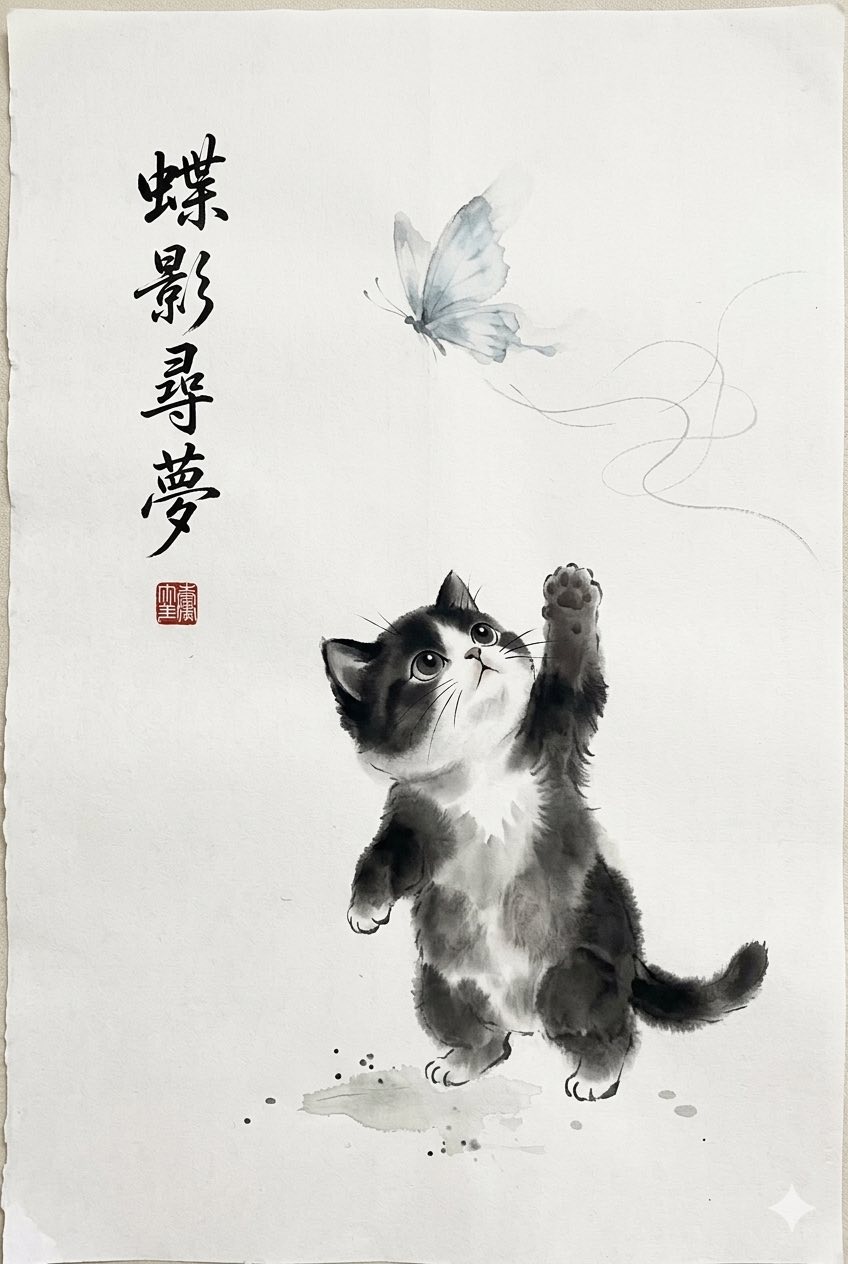 蝶影尋夢